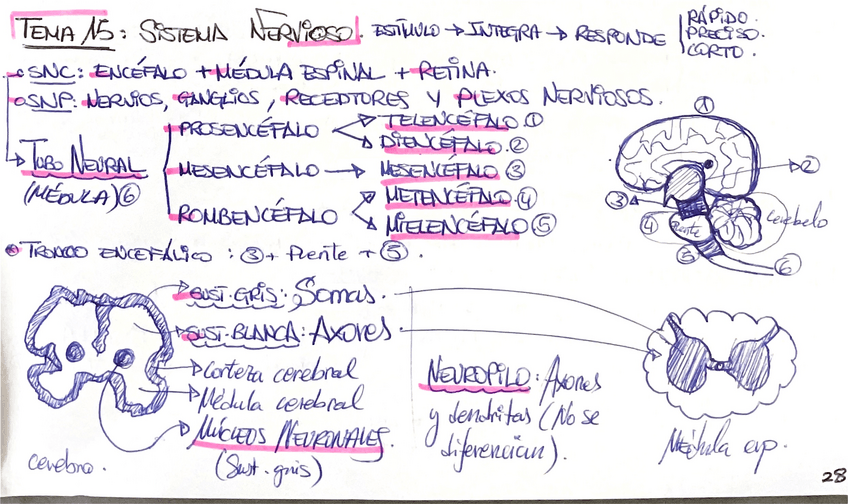 TEMA 15: SISTEMA NERVIOSO. ESTÍMULO → INTEGRA → RESPONDE
RÁPIDO.
PRECISO.
CORTO.
SNC: ENCÉFALO + MÉDULA ESPINAL + RETINA.
SNP: NERVIOS, GANGLIOS, RECEPTORES Y PLEXOS NERVIOSOS.
TUBO NEURAL
(MÉDULA) ⑥
PROSENCÉFALO
TELENCÉFALO ①
DIENCÉFALO ②
MESENCÉFALO → MESENCÉFALO ③
ROMBENCÉFALO
METENCÉFALO ④
MIELENCÉFALO ⑤
①
②
③
④
Puente
cerebelo
⑤
⑥
TRONCO ENCEFÁLICO: ③ + Puente + ⑤.
SUST. GRIS: Somas.
SUST. BLANCA: AXONES.
Corteza cerebral
Médula cerebral
NÚCLEOS NEURONALES.
(Sust. gris)
cerebro.
NEUROPILO: Axones
y dendritas (No se
diferencian).
Médula esp.
28